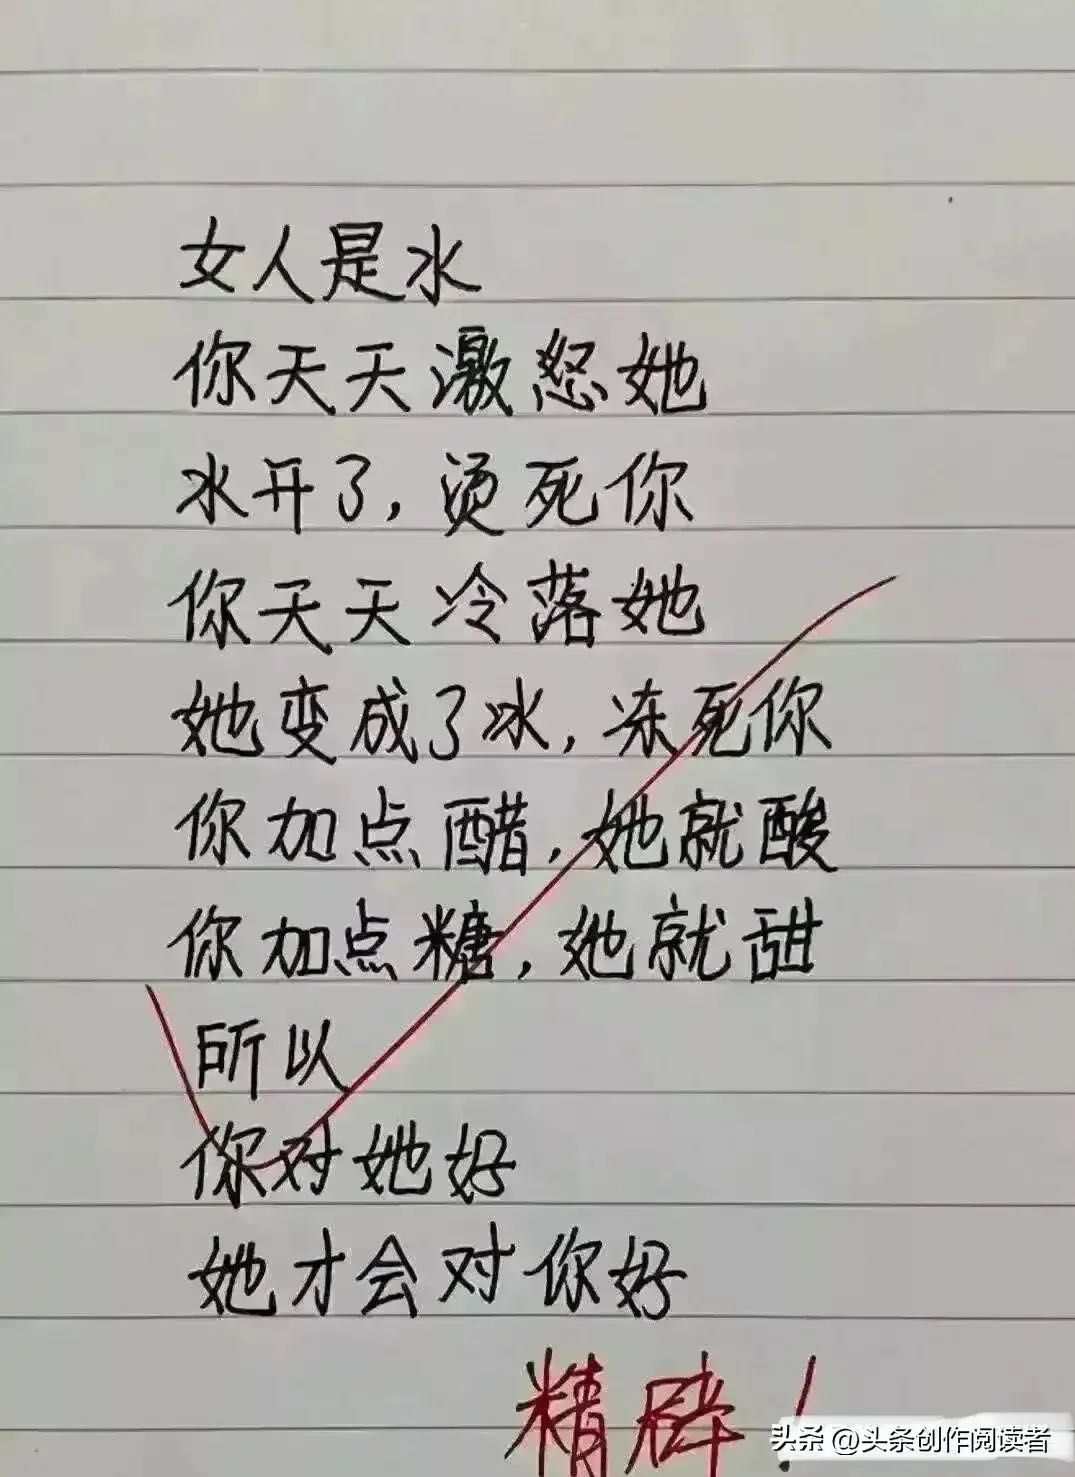 女人是水
你天天激怒她
水开了,烫死你
你天天冷落她
她变成了冰,冻死你
你加点醋,她就酸
你加点糖,她就甜
所以
你对她好
她才会对你好
精辟!
头条 @头条创作阅读者